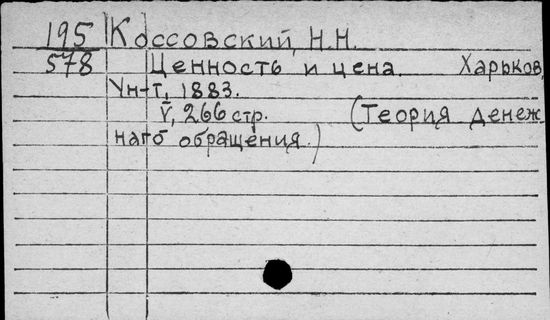 195 Коссовский, Н.Н.
578 Ценность и цена. Харьков,
Ун-т, 1883.
V, 266 стр. (Теория денеж
наго обращения.)